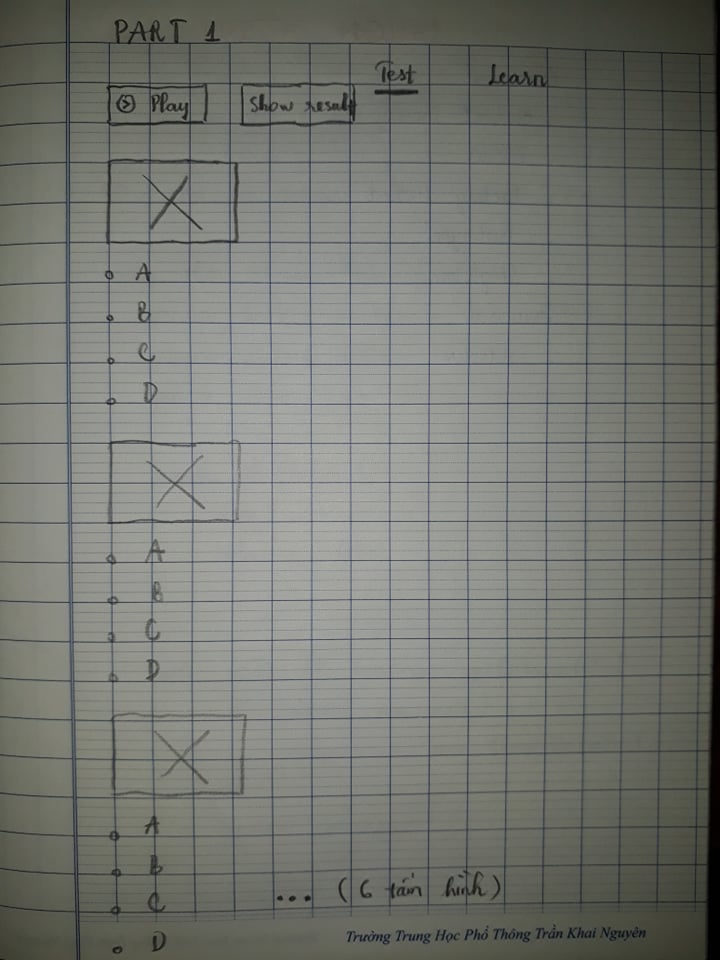 PART 1
Test Learn
Play Show result
A
B
C
D
A
B
C
D
A
B
C
... (6 tấm hình)
D
Trường Trung Học Phổ Thông Trần Khai Nguyên